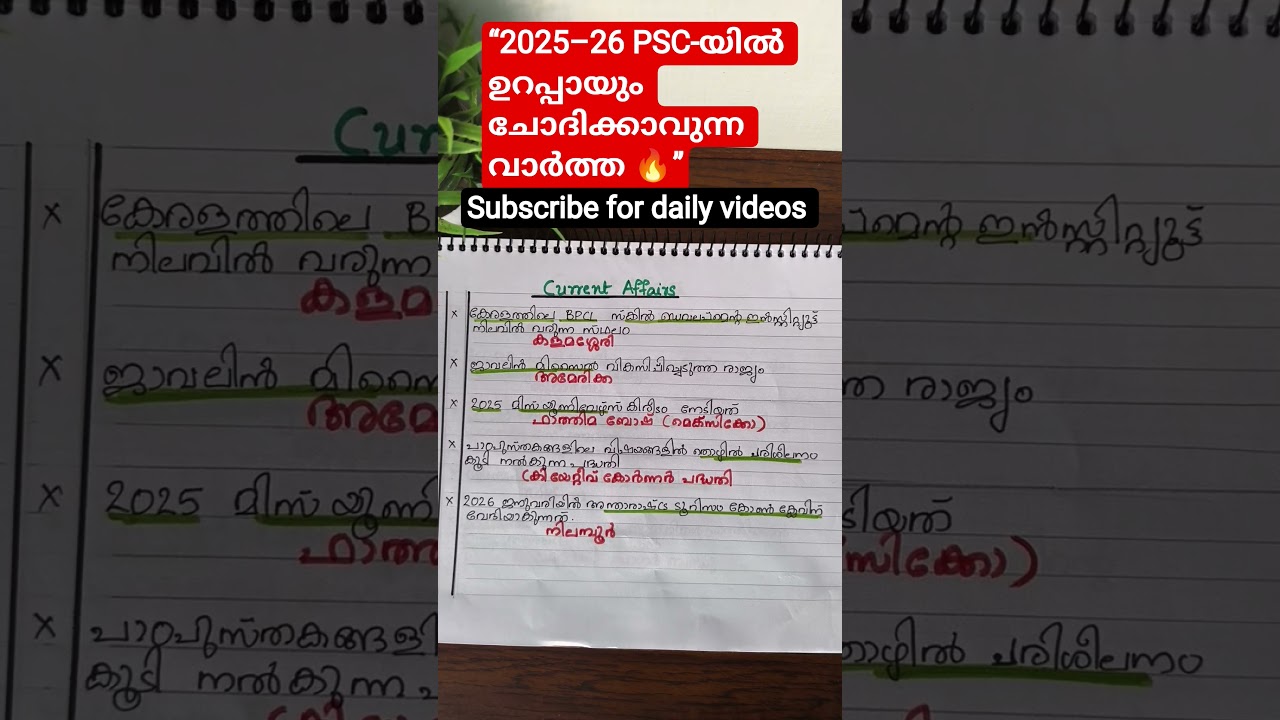 “2025–26 PSC-യിൽ
ഉറപ്പായും
ചോദിക്കാവുന്ന
വാർത്ത 🔥”
Subscribe for daily videos
Current Affairs
x കേരളത്തിലെ BPCL സ്കിൽ ഡെവലപ്മെന്റ് ഇൻസ്റ്റിറ്റ്യൂട്ട്
നിലവിൽ വരുന്ന സ്ഥലം
കളമശ്ശേരി
x ജാവലിൻ മിസൈൽ വികസിപ്പിച്ചെടുത്ത രാജ്യം
അമേരിക്ക
x 2025 മിസ് യൂണിവേഴ്സ് കിരീടം നേടിയത്
ഫാത്തിമ ബോഷ് (മെക്സിക്കോ)
x പാഠപുസ്തകങ്ങളിലെ വിഷയങ്ങളിൽ തൊഴിൽ പരിശീലനം
കൂടി നൽകുന്ന പദ്ധതി
ക്രിയേറ്റീവ് കോർണർ പദ്ധതി
x 2026 ജനുവരിയിൽ അന്താരാഷ്ട്ര ടൂറിസം കോൺക്ലേവിന്
വേദിയാകുന്നത്.
നിലമ്പൂർ